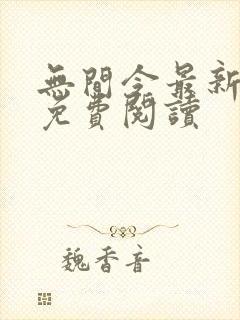 無間令最新
免費閱讀
魏香音